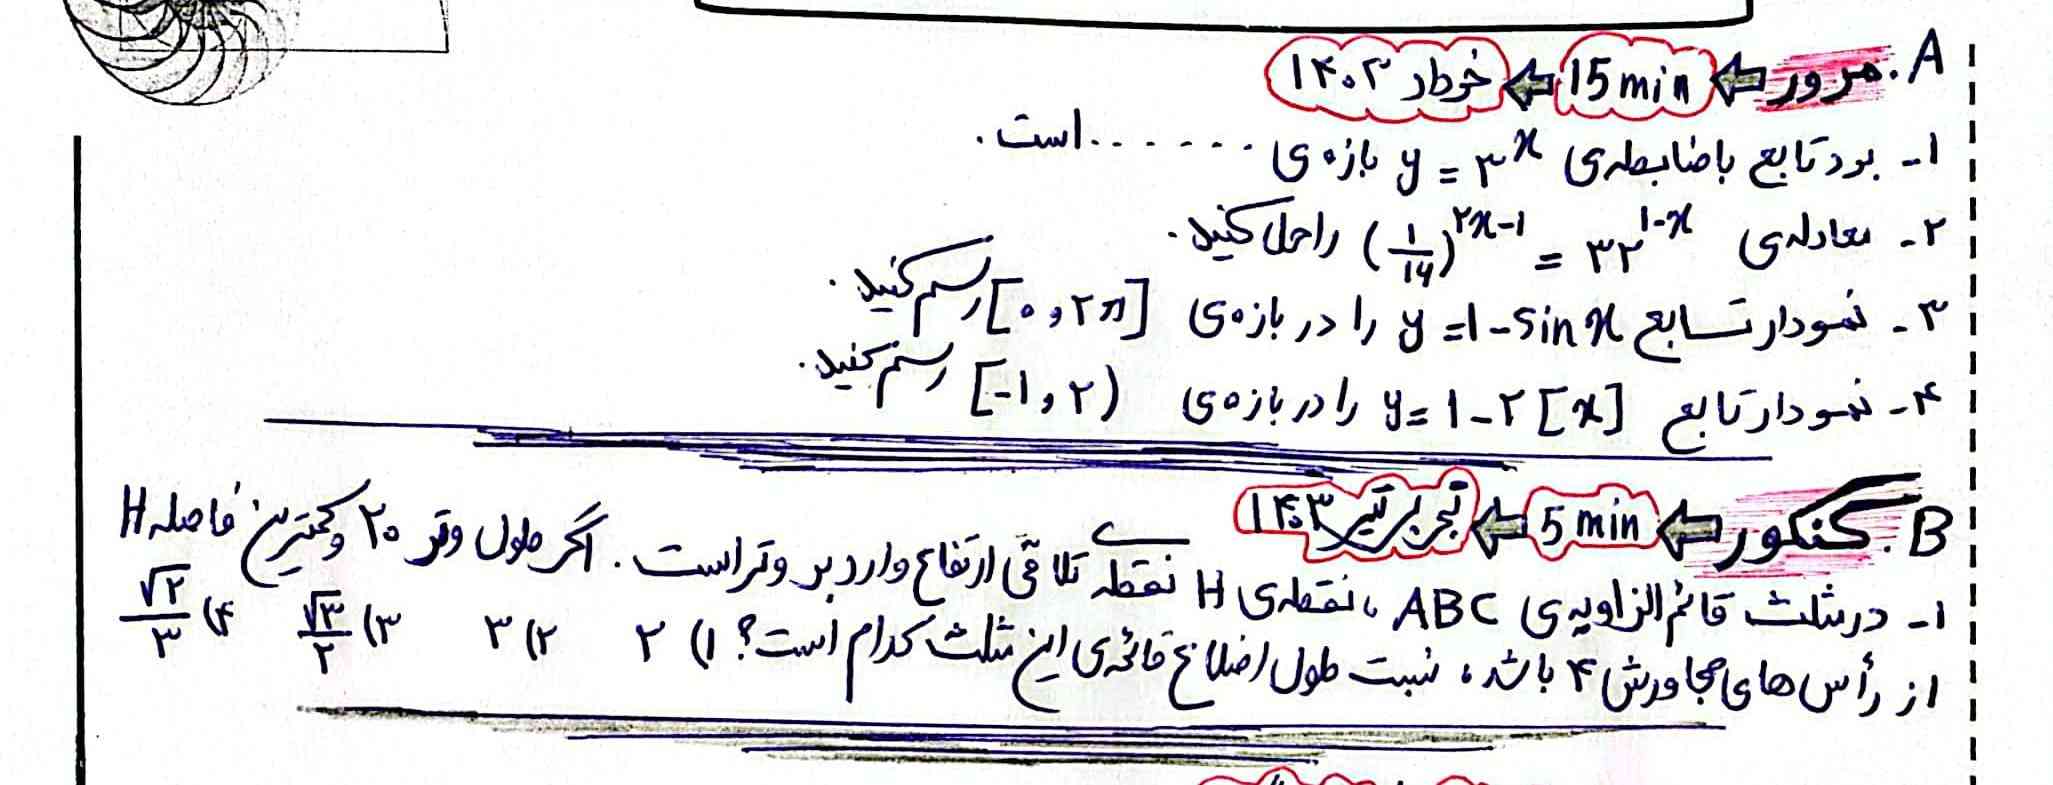 A. مرور ⇐ 15 min ⇐ خرداد ۱۴۰۳
۱- برد تابع با ضابطه‌ی y = ۳^x بازه‌ی ....... است.
۲- معادله‌ی (۱/۱۶)^(۲x-۱) = ۳۲^(۱-x) را حل کنید.
۳- نمودار تابع y = ۱ - sin x را در بازه‌ی [۰ , ۲π] رسم کنید.
۴- نمودار تابع y = ۱ - ۲[x] را در بازه‌ی [-۱ , ۲) رسم کنید.
B. کنکور ⇐ 5 min ⇐ تجربی تیر ۱۴۰۳
۱- در مثلث قائم الزاویه‌ی ABC ، نقطه‌ی H نقطه‌ی تلاقی ارتفاع وارد بر وتر است. اگر طول وتر ۲۰ و کمترین فاصله H
از رأس‌های مجاورش ۴ باشد، نسبت طول اضلاع قائمه‌ی این مثلث کدام است؟ ۱) ۲ ۲) ۳ ۳) √۳/۲ ۴) √۲/۳